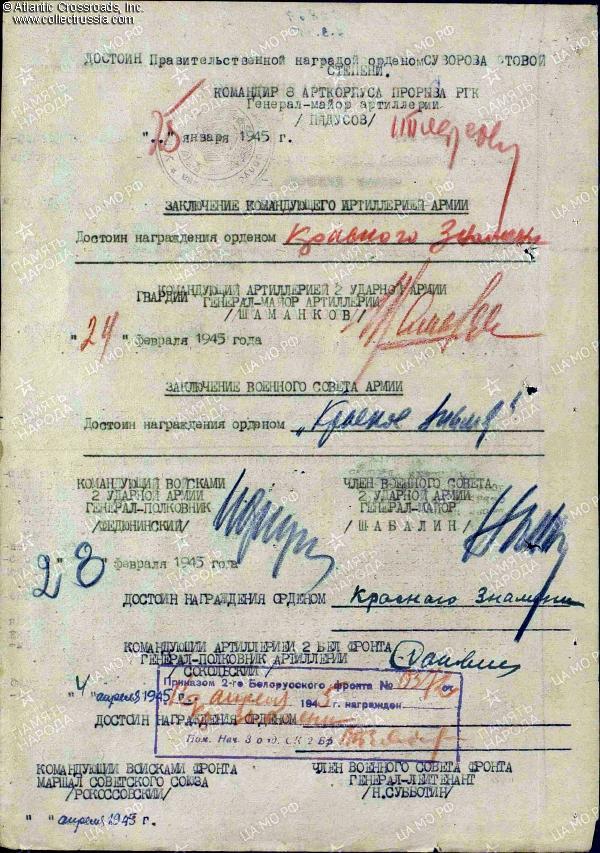 © Atlantic Crossroads, Inc.
www.collectrussia.com
ДОСТОИН Правительственной наградой орденом СУВОРОВА ВТОРОЙ
СТЕПЕНИ.
КОМАНДИР 8 АРТКОРПУСА ПРОРЫВА РГК
Генерал-майор артиллерии
/ПЯДУСОВ/
"25" января 1945 г.
ЗАКЛЮЧЕНИЕ КОМАНДУЮЩЕГО АРТИЛЛЕРИЕЙ АРМИИ
Достоин награждения орденом Красного Знамени
КОМАНДУЮЩИЙ АРТИЛЛЕРИЕЙ 2 УДАРНОЙ АРМИИ
ГВАРДИИ ГЕНЕРАЛ-МАЙОР АРТИЛЛЕРИИ
/ШАМАНКОВ/
"24" февраля 1945 года
ЗАКЛЮЧЕНИЕ ВОЕННОГО СОВЕТА АРМИИ
Достоин награждения орденом „Красное Знамя"
КОМАНДУЮЩИЙ ВОЙСКАМИ
2 УДАРНОЙ АРМИИ
ГЕНЕРАЛ-ПОЛКОВНИК
/ФЕДЮНИНСКИЙ/
ЧЛЕН ВОЕННОГО СОВЕТА
2 УДАРНОЙ АРМИИ
ГЕНЕРАЛ-МАЙОР
/ШАБАЛИН/
"28" февраля 1945 года
ДОСТОИН НАГРАЖДЕНИЯ ОРДЕНОМ Красного Знамени
КОМАНДУЮЩИЙ АРТИЛЛЕРИЕЙ 2 БЕЛ ФРОНТА
ГЕНЕРАЛ-ПОЛКОВНИК АРТИЛЛЕРИИ
/СОКОЛЬСКИЙ/
"4" апреля 1945 г.
Приказом 2-го Белорусского фронта № от
апреля 1945 г. награжден
ДОСТОИН НАГРАЖДЕНИЯ ОРДЕНОМ
Пом. Нач. 3 отд. ОК 2 Бф
КОМАНДУЮЩИЙ ВОЙСКАМИ ФРОНТА
МАРШАЛ СОВЕТСКОГО СОЮЗА
/РОКОССОВСКИЙ/
ЧЛЕН ВОЕННОГО СОВЕТА ФРОНТА
ГЕНЕРАЛ-ЛЕЙТЕНАНТ
/Н.СУББОТИН/
" " апреля 1945 г.
ПАМЯТЬ НАРОДА
ЦА МО РФ